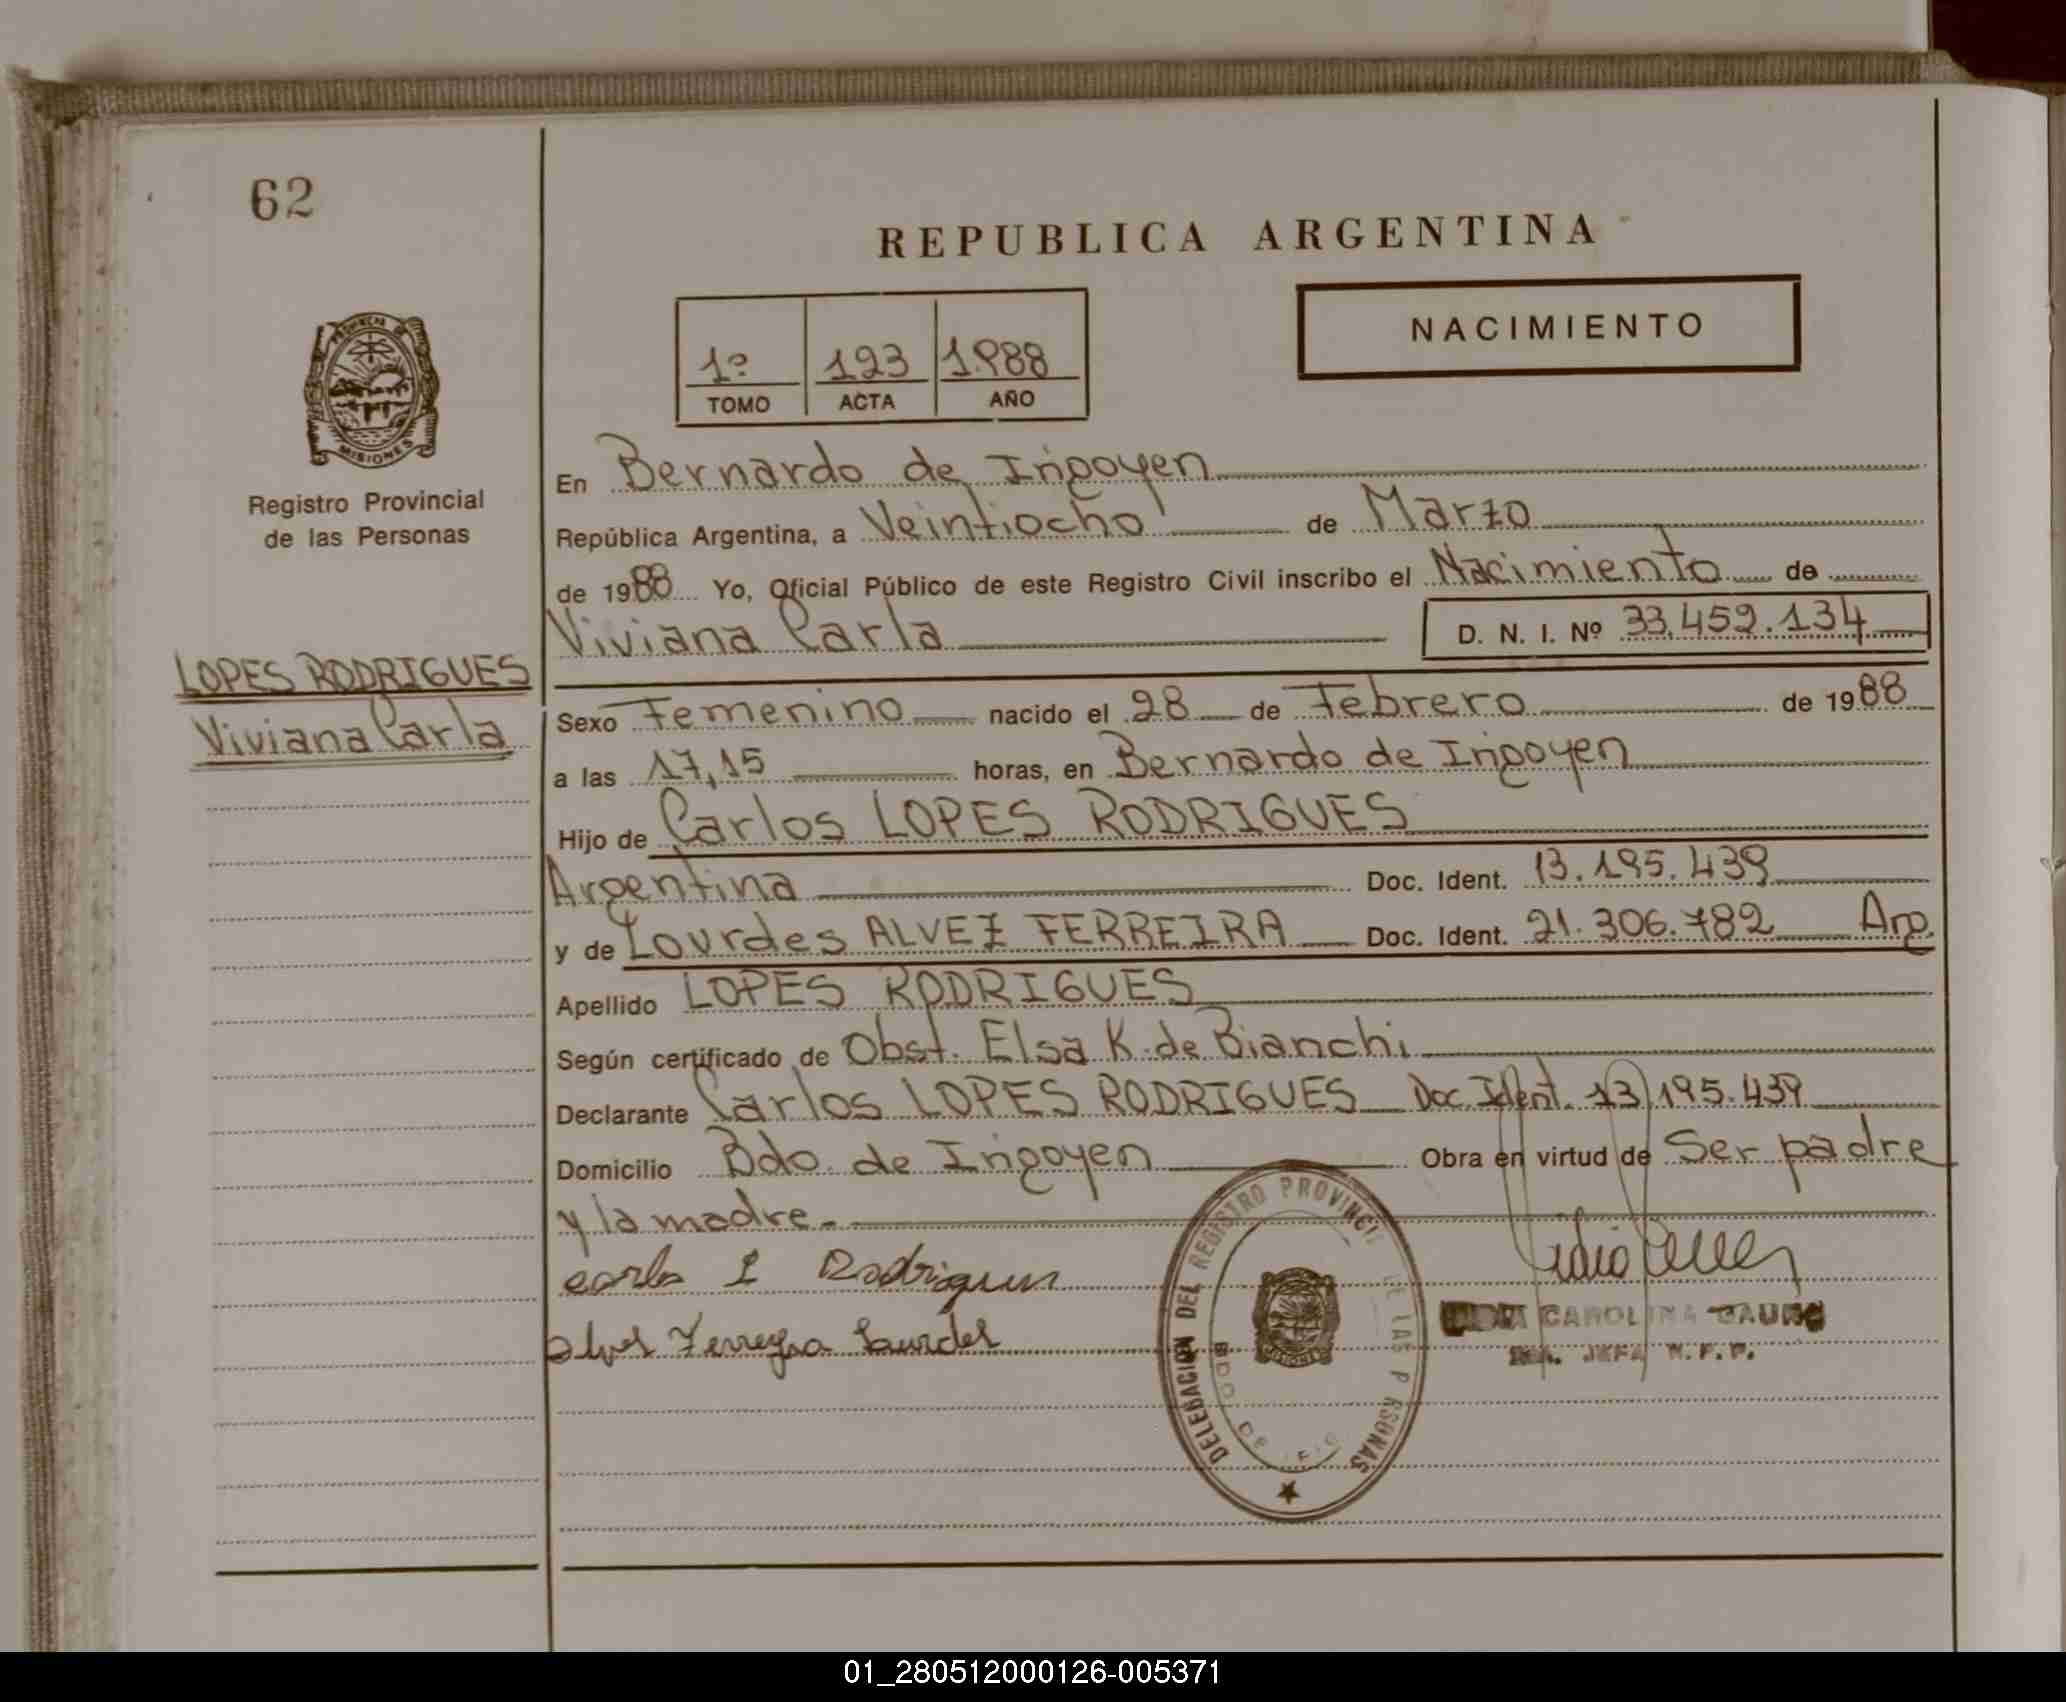 62
REPUBLICA ARGENTINA
NACIMIENTO
1º 123 1.988
TOMO ACTA AÑO
PROVINCIA DE
MISIONES
Registro Provincial
de las Personas
LOPES RODRIGUES
Viviana Carla
En Bernardo de Irigoyen
República Argentina, a Veintiocho de Marzo
de 1988 Yo, Oficial Público de este Registro Civil inscribo el Nacimiento de
Viviana Carla D. N. I. Nº 33.459.134
Sexo Femenino nacido el 28 de Febrero de 1988
a las 17,15 horas, en Bernardo de Irigoyen
Hijo de Carlos LOPES RODRIGUES
Argentina Doc. Ident. 13.195.439
y de Lourdes ALVEZ FERREIRA Doc. Ident. 21.306.782 Arg.
Apellido LOPES RODRIGUES
Según certificado de Obst. Elsa K. de Bianchi
Declarante Carlos LOPES RODRIGUES Doc. Ident. 13.195.439
Domicilio Bdo. de Irigoyen Obra en virtud de Ser padre
y la madre.
Carlos L Rodrigues
Alves Ferreyra Lourdes
DELEGACION DEL REGISTRO PROVINCIAL DE LAS PERSONAS
BDO DE
MISIONES
CAROLINA
JEFA
01_280512000126-005371